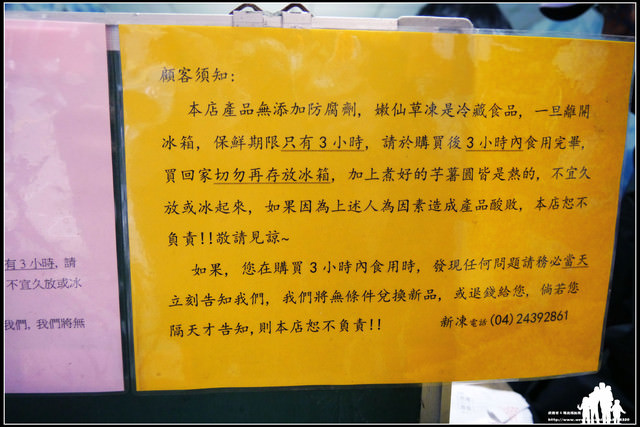 有3小時, 請
不宜久放或冰
我們, 我們將無
顧客須知:
本店產品無添加防腐劑, 嫩仙草凍是冷藏食品, 一旦離開
冰箱, 保鮮期限只有3小時, 請於購買後3小時內食用完畢,
買回家切勿再存放冰箱, 加上煮好的芋薯圓皆是熱的, 不宜久
放或冰起來, 如果因為上述人為因素造成產品酸敗, 本店恕不
負責!!敬請見諒~
如果, 您在購買3小時內食用時, 發現任何問題請務必當天
立刻告知我們, 我們將無條件兌換新品, 或退錢給您, 倘若您
隔天才告知,則本店恕不負責!! 新凍電話(04)24392861